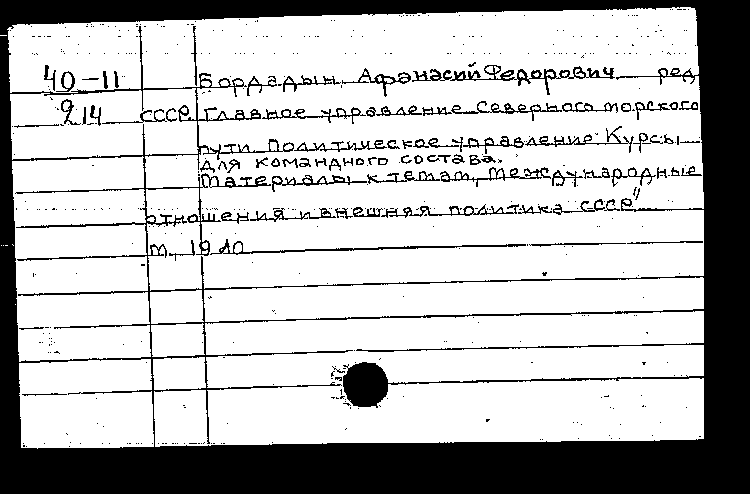 40-11 Бордадын, Афанасий Федорович ред
214 СССР. Главное управление Северного морского
пути. Политическое управление. Курсы
для командного состава.
Материалы к темам, Международные
отношения и внешняя политика СССР"
М., 1940